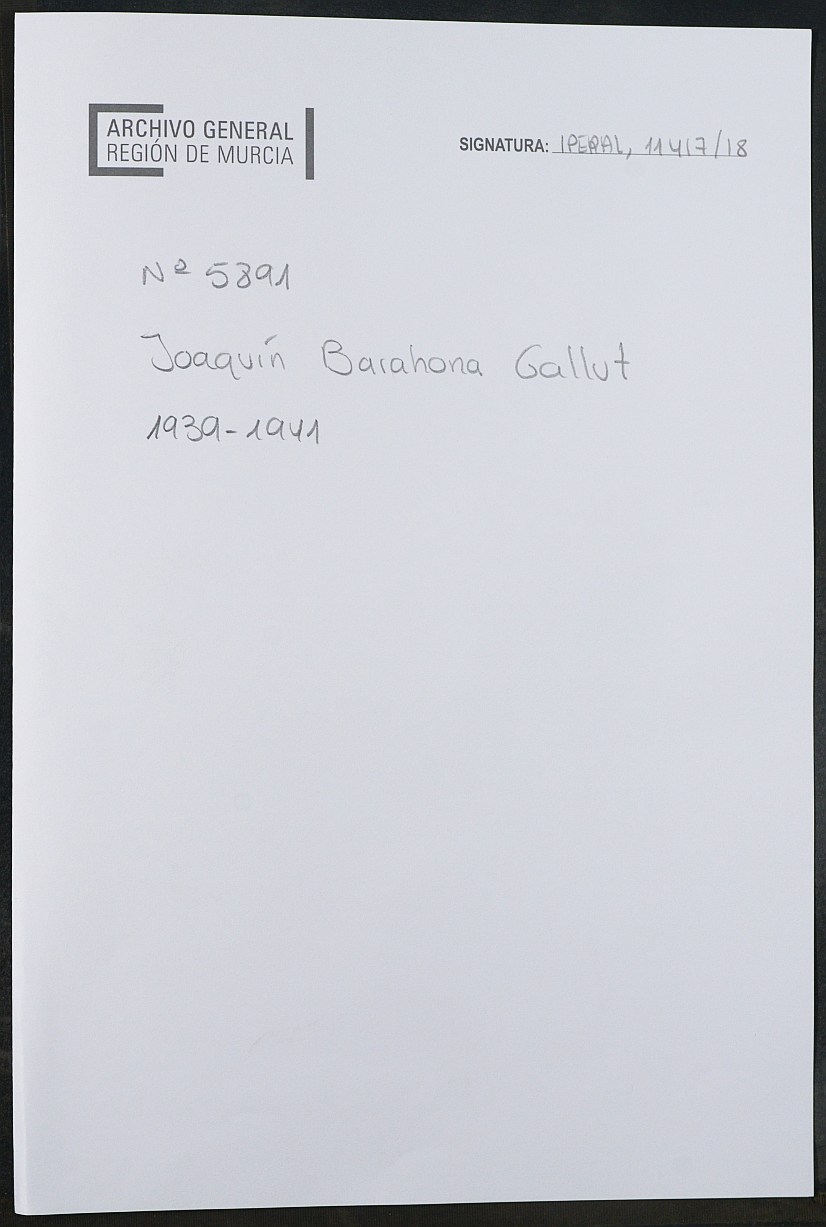 ARCHIVO GENERAL
REGIÓN DE MURCIA
SIGNATURA: IPERAL, 11417/18
Nº 5391
Joaquín Barahona Gallut
1939-1941